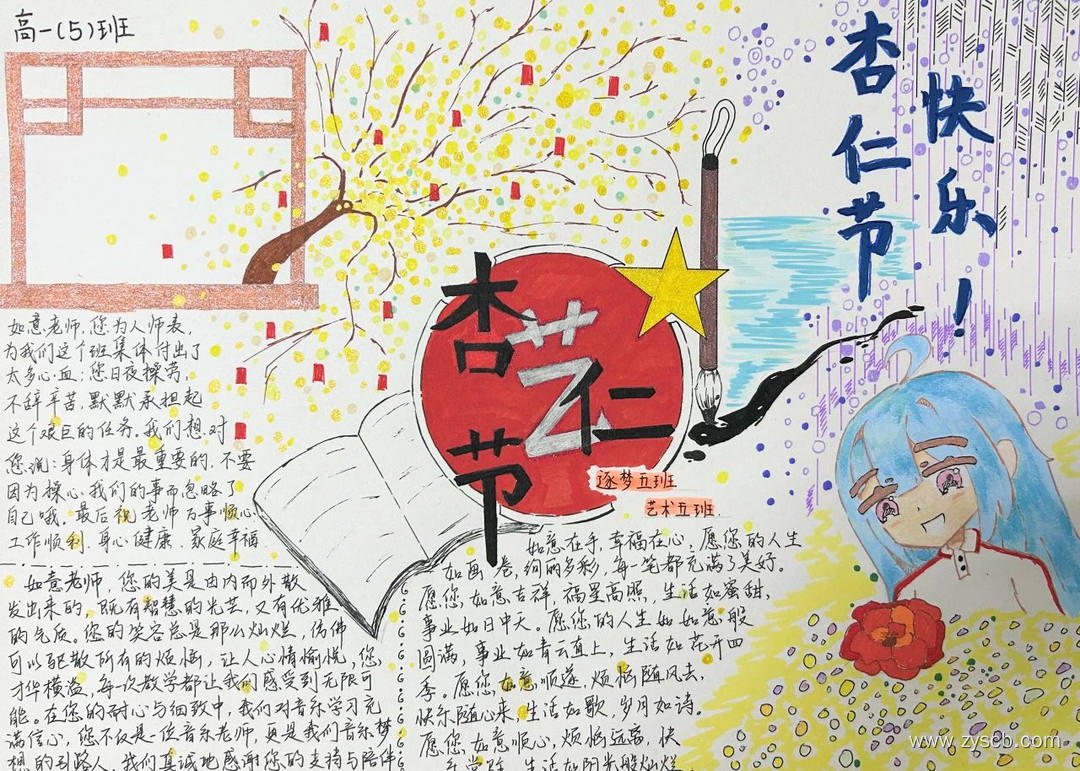 高一(5)班
杏仁节
快乐!
杏
艺
仁
节
逐梦五班
艺术五班
如意老师,您为人师表,
为我们这个班集体付出了
太多心血;您日夜操劳,
不辞辛苦,默默承担起
这个艰巨的任务。我们想对
您说:身体才是最重要的,不要
因为操心我们的事而忽略了
自己哦。最后祝老师万事顺心
工作顺利.身心健康.家庭幸福
如意老师,您的美是由内而外散
发出来的,既有智慧的光芒,又有优雅
的气质。您的笑容总是那么灿烂,仿佛
可以驱散所有的烦恼,让人心情愉悦,您
才华横溢,每次教学都让我们感受到无限可
能。在您的耐心与细致中,我们对音乐学习充
满信心,您不仅是一位音乐老师,更是我们音乐梦
想的引路人,我们真诚地感谢您的支持与陪伴
如意在手,幸福在心,愿您的人生
如画卷,绚丽多彩,每一笔都充满了美好。
愿您如意吉祥,福星高照,生活如蜜甜,
事业如日中天。愿您的人生如如意般
圆满,事业如青云直上,生活如花开四
季。愿您如意顺遂,烦恼随风去,
快乐随心来,生活如歌,岁月如诗。
愿您如意顺心,烦恼远离,快
乐常随,生活如阳光般灿烂
www.zyscb.com